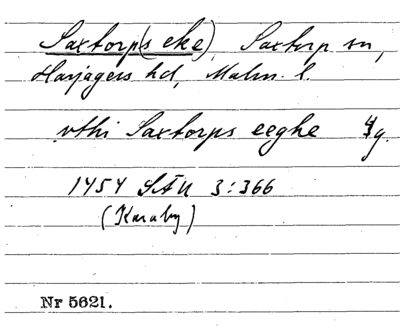 Saxtorp(s eke), Saxtorp sn,
Harjagers hd, Malm. l.
vthi Saxtorps eeghe
1454 LÄU 3:366
(Karaby)
Nr 5621.